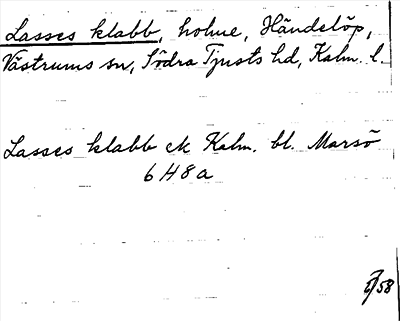 Lasses klabb, holme, Händelöp,
Västrums sn, Södra Tjusts hd, Kalm. l.
Lasses klabb ek Kalm. bl. Marsö
6 H 8 a
58